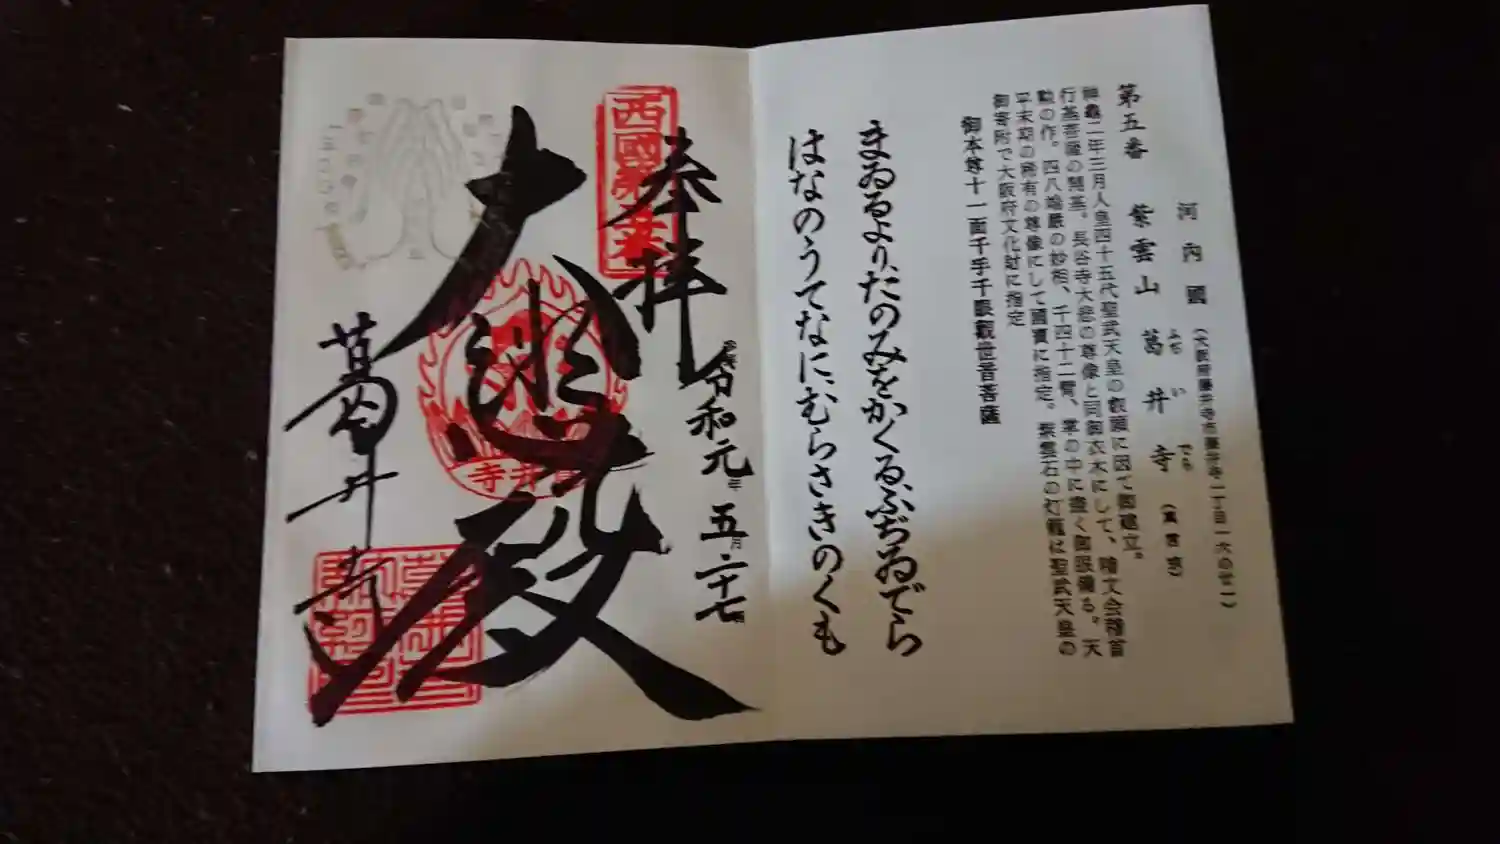 河内國(大阪府藤井寺市藤井寺一丁目一六の廿一)
第五番 紫雲山 葛井寺(真言宗)
ふぢ い でら
神龜二年三月人皇四十五代聖武天皇の叡願に因て御建立。
行基菩薩の開基。長谷寺大悲の尊像と同御衣木にして、稽文会稽首
勲の作。四八端嚴の妙相、千四十二臂、掌の中に盡く御眼備る。天
平末期の稀有の尊像にして國寶に指定。紫雲石の灯籠は聖武天皇の
御寄附で大阪府文化財に指定
御本尊十一面千手千眼觀世音菩薩
まゐるより、たのみをかくる、ふぢゐでら
はなのうてなに、むらさきのくも
西國第五番
奉拝
令和元年五月二十七日
大悲殿
井寺
葛井寺